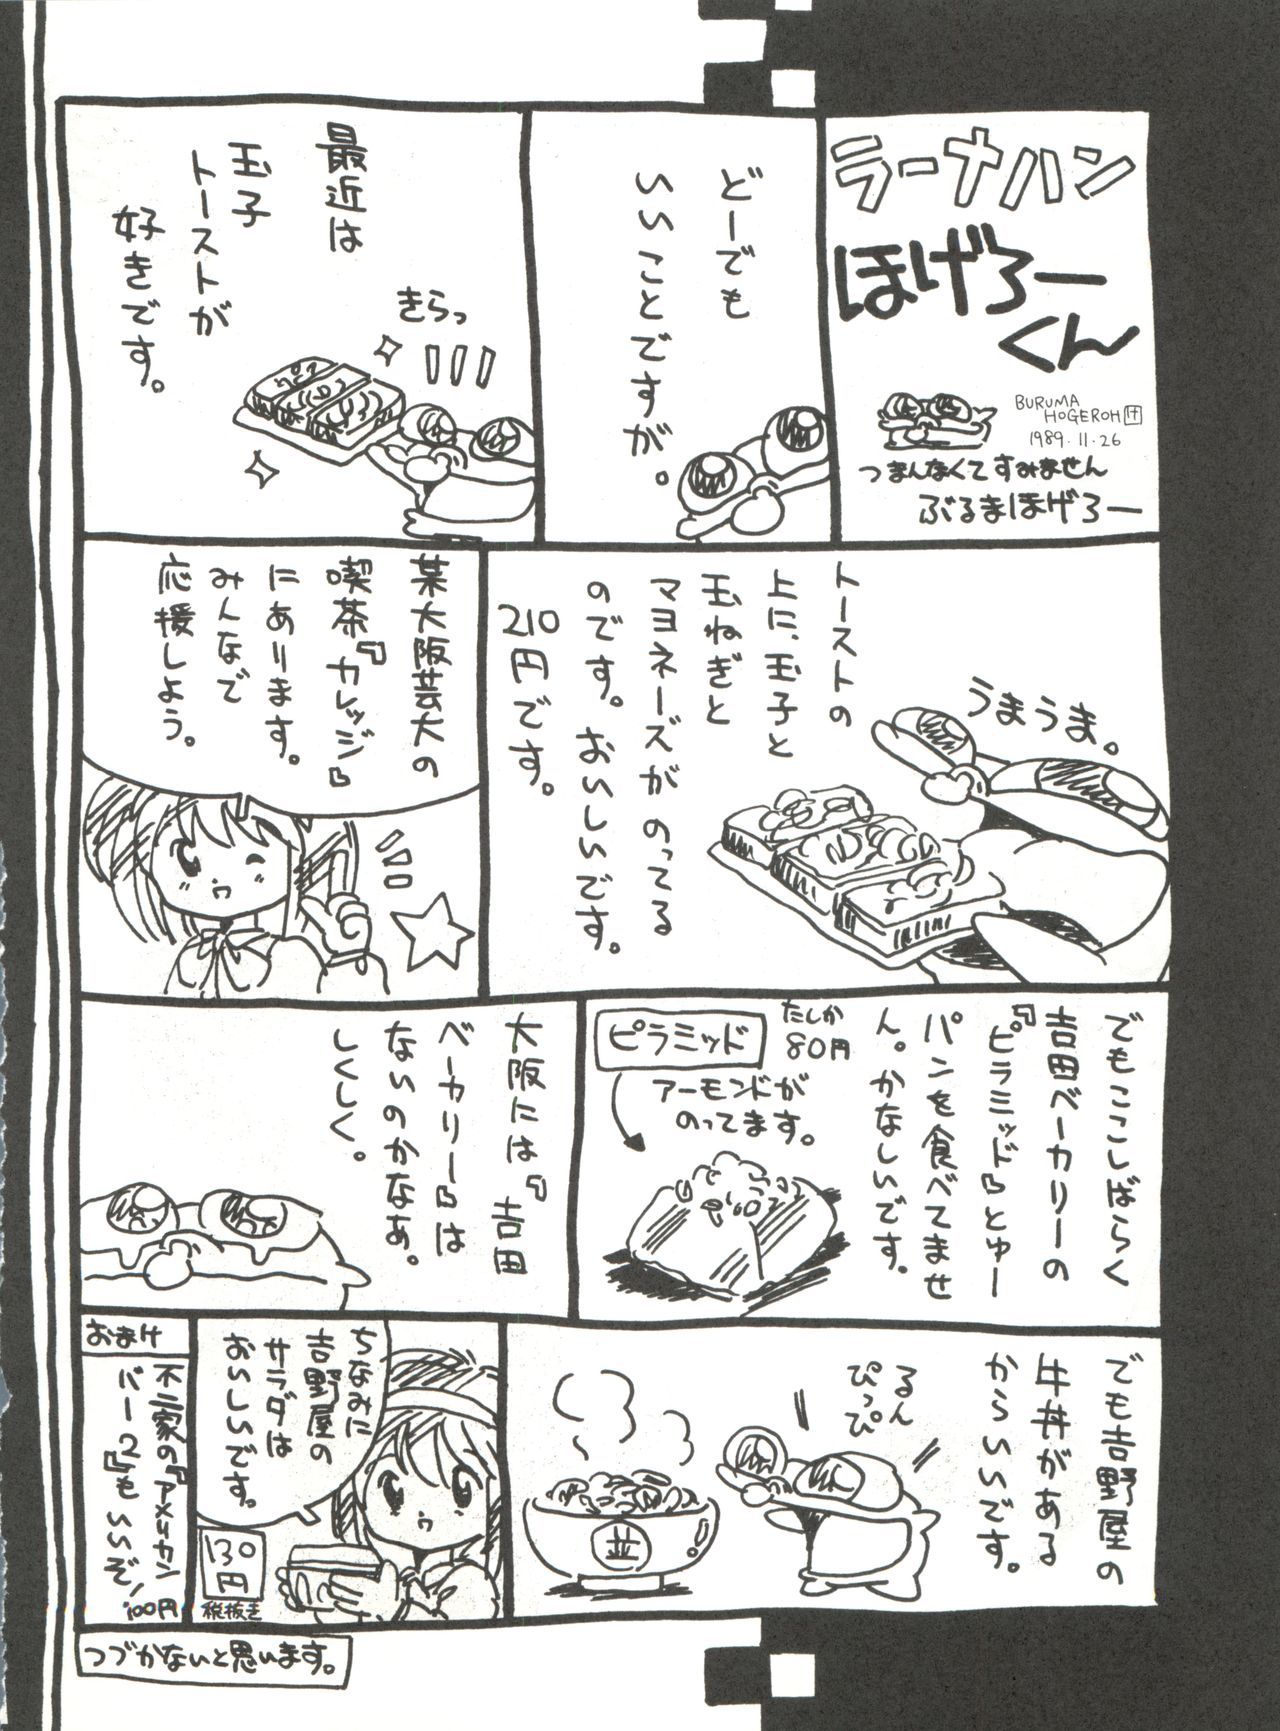 ラーナハン
ほげろー
くん
BURUMA
HOGEROH
1989.11.26
つまんなくてすみません
ぶるまほげろー
どーでも
いいことですが。
最近は
玉子
トーストが
好きです。
きらっ
トーストの
上に、玉子と
玉ねぎと
マヨネーズがのってる
のです。おいしいです。
210円です。
うまうま。
某大阪芸大の
喫茶『カレッジ』
にあります。
みんなで
応援しよう。
でもここしばらく
吉田ベーカリーの
『ピラミッド』とゆー
パンを食べてませ
ん。かなしいです。
たしか
80円
ピラミッド
アーモンドが
のってます。
大阪には『吉田
ベーカリー』は
ないのかなあ。
しくしく。
でも吉野屋の
牛丼がある
からいいです。
るん
ぴっぴ
並
ちなみに
吉野屋の
サラダは
おいしいです。
130円
税抜き
おまけ
不二家の『アメリカン
バー2』もいいぞ!
100円
つづかないと思います。